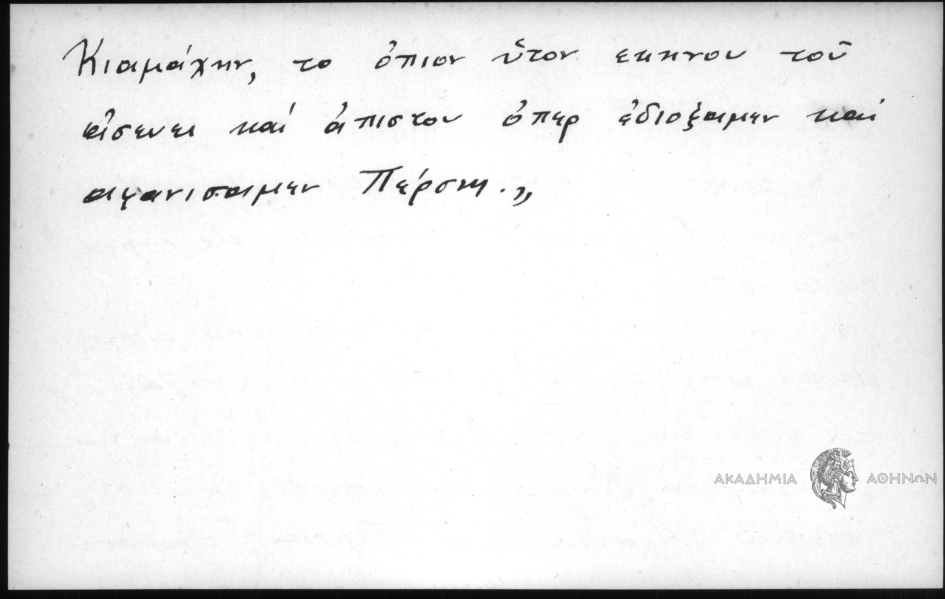 Κιαμάχην, το ὁπιον ὗτον εκηνου τοῦ
ἀσενει καί ἀπιστου ὁπερ ἐδιοξαμεν καί
αφανισαμεν Πέρσην.„
ΑΚΑΔΗΜΙΑ ΑΘΗΝΩΝ